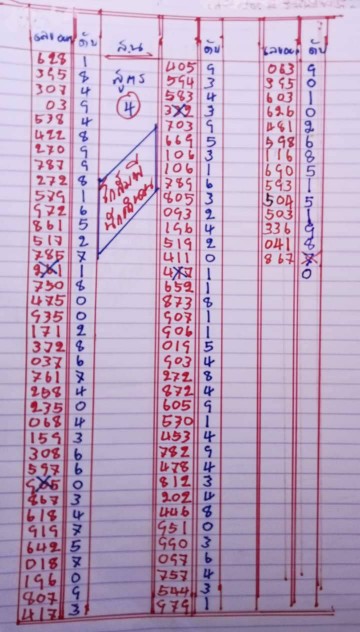 เลขออก ดับ
628 1
395 8
307 4
03 9
538 4
422 8
270 9
787 9
272 8
579 1
972 6
861 5
517 2
785 7
1
750 8
475 0
935 0
171 2
372 8
037 6
761 7
258 4
235 0
068 4
159 3
308 6
597 6
905 0
867 3
618 4
919 7
642 5
018 7
196 0
807 9
417 3
สูตร
4
ดับ
405 9
594 3
583 4
3
703 9
669 5
106 3
106 1
789 6
805 3
093 2
196 4
519 2
411 0
1
652 1
873 8
907 1
906 1
019 5
903 4
272 8
872 4
605 9
570 1
453 4
782 9
478 4
812 3
202 4
446 8
951 0
990 3
097 6
757 4
544 3
979 1
เลขออก ดับ
063 9
395 0
603 1
626 0
481 2
598 6
116 8
690 5
593 1
504 5
503 1
336 9
041 8
867
0